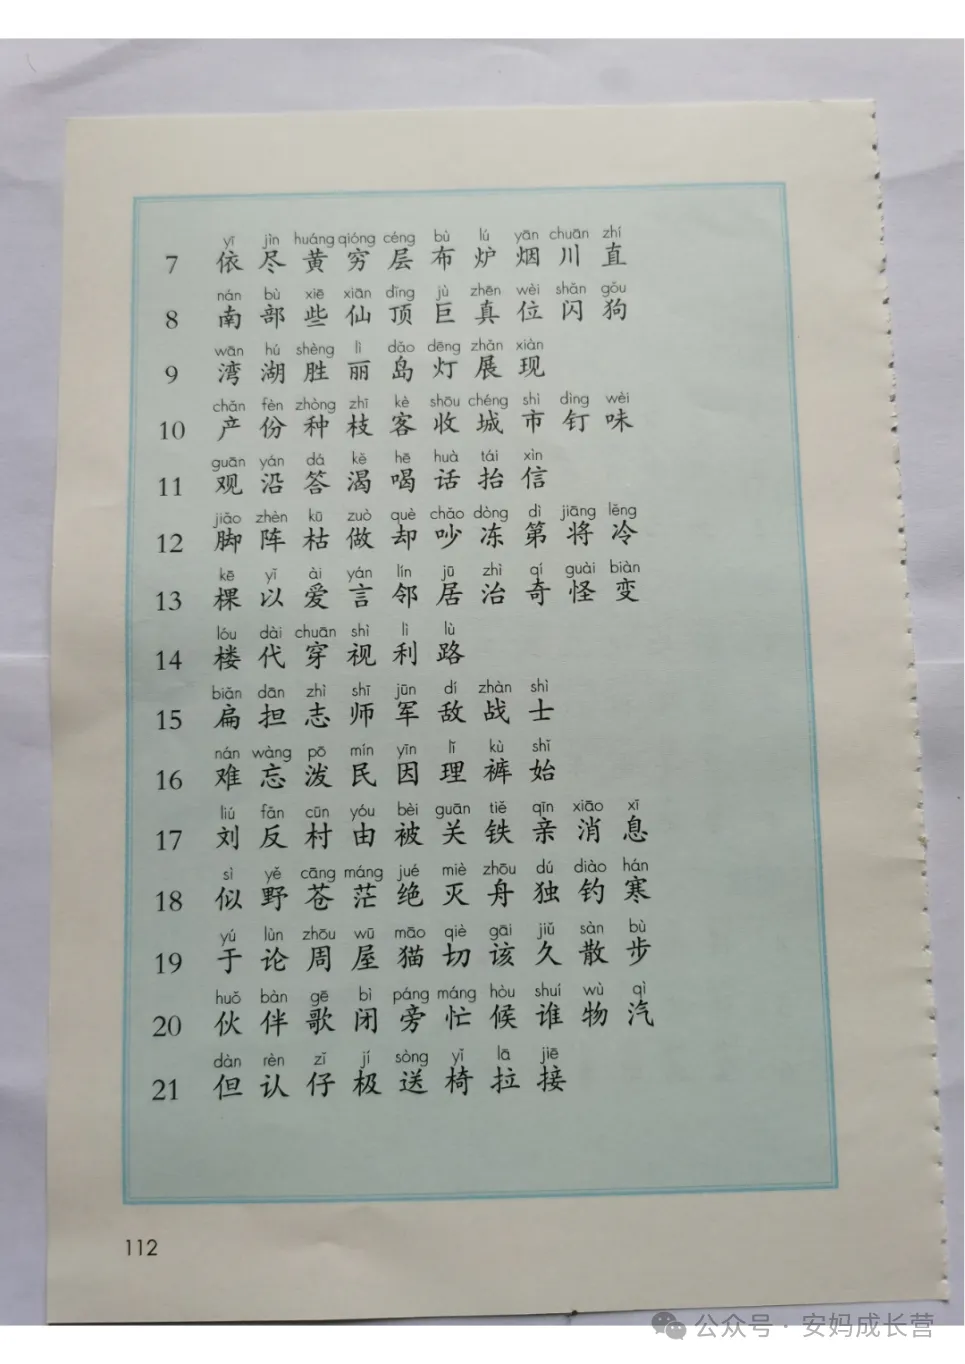 yī jìn huáng qióng céng bù lú yān chuān zhí
7 依 尽 黄 穷 层 布 炉 烟 川 直
nán bù xiē xiān dǐng jù zhēn wèi shǎn gǒu
8 南 部 些 仙 顶 巨 真 位 闪 狗
wān hú shèng lì dǎo dēng zhǎn xiàn
9 湾 湖 胜 丽 岛 灯 展 现
chǎn fèn zhòng zhī kè shōu chéng shì dìng wèi
10 产 份 种 枝 客 收 城 市 钉 味
guān yán dá kě hē huà tái xìn
11 观 沿 答 渴 喝 话 抬 信
jiǎo zhèn kū zuò què chǎo dòng dì jiāng lěng
12 脚 阵 枯 做 却 吵 冻 第 将 冷
kē yǐ ài yán lín jū zhì qí guài biàn
13 棵 以 爱 言 邻 居 治 奇 怪 变
lóu dài chuān shì lì lù
14 楼 代 穿 视 利 路
biǎn dān zhì shī jūn dí zhàn shì
15 扁 担 志 师 军 敌 战 士
nán wàng pō mín yīn lǐ kù shǐ
16 难 忘 泼 民 因 理 裤 始
liú fǎn cūn yóu bèi guān tiě qīn xiāo xī
17 刘 反 村 由 被 关 铁 亲 消 息
sì yě cāng máng jué miè zhōu dú diào hán
18 似 野 苍 茫 绝 灭 舟 独 钓 寒
yú lùn zhōu wū māo qiè gāi jiǔ sàn bù
19 于 论 周 屋 猫 切 该 久 散 步
huǒ bàn gē bì páng máng hòu shuí wù qì
20 伙 伴 歌 闭 旁 忙 候 谁 物 汽
dàn rèn zǐ jí sòng yǐ lā jiē
21 但 认 仔 极 送 椅 拉 接
112
公众号 · 安妈成长营